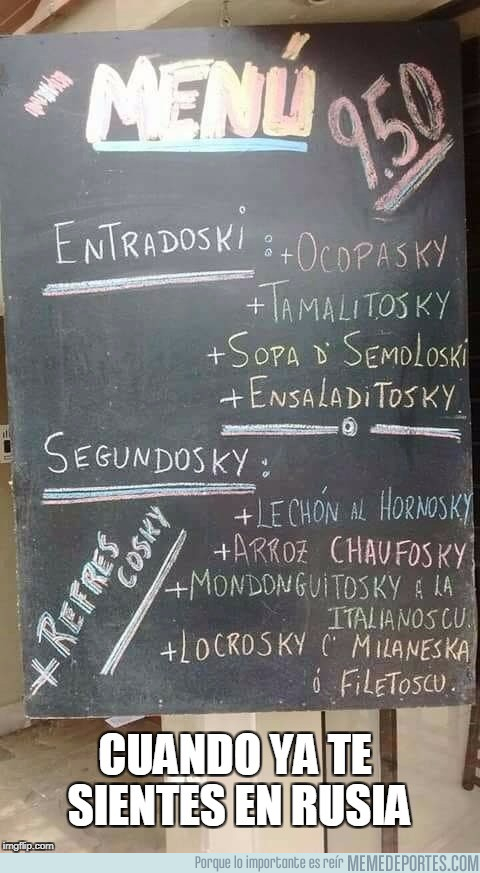 MENÚ
9.50
ENTRADOSKI : +OCOPASKY
+TAMALITOSKY
+SOPA D' SEMOLOSKI
+ENSALADITOSKY.
SEGUNDOSKY :
+LECHÓN AL HORNOSKY
+ARROZ CHAUFOSKY
+MONDONGUITOSKY A LA
ITALIANOSCU.
+LOCROSKY C' MILANESKA
ó FILETOSCU.
+ REFRES
COSKY
CUANDO YA TE
SIENTES EN RUSIA
imgflip.com
Porque lo importante es reír MEMEDEPORTES.COM